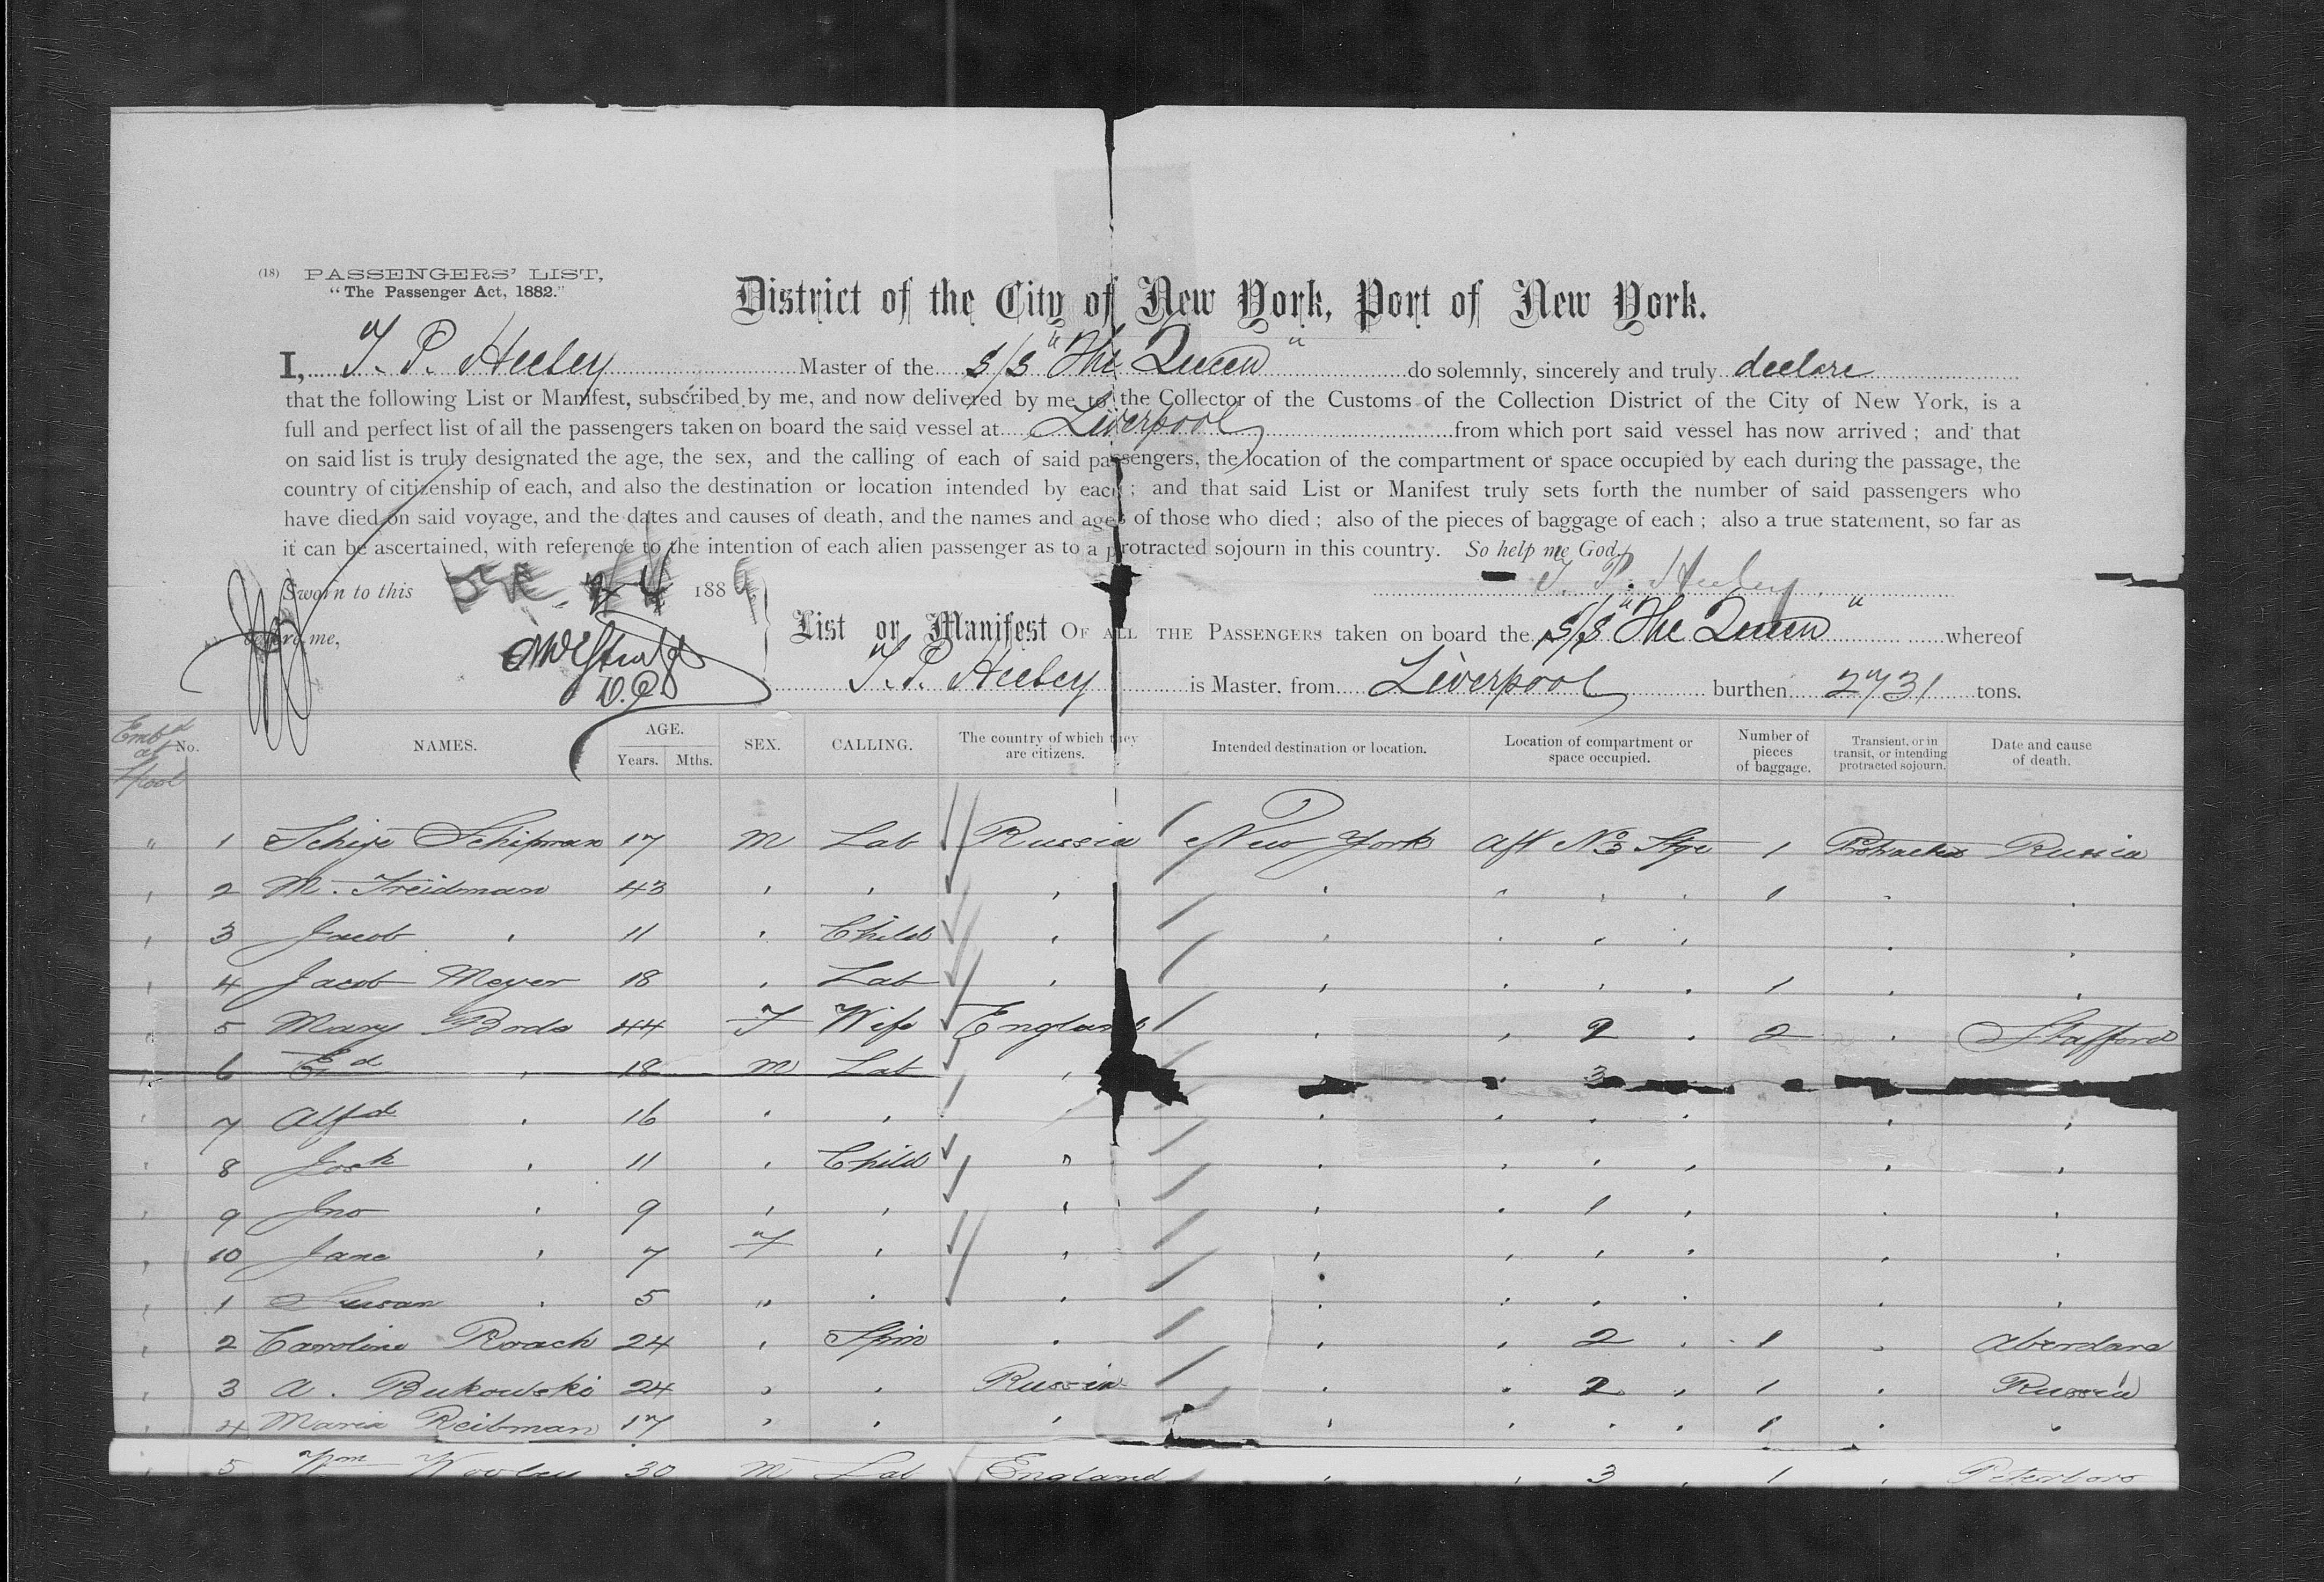 (18) PASSENGERS' LIST,
"The Passenger Act, 1882."
District of the City of New York, Port of New York.
I, T. P. Heeley Master of the S/S "The Queen" do solemnly, sincerely and truly declare
that the following List or Manifest, subscribed by me, and now delivered by me to the Collector of the Customs of the Collection District of the City of New York, is a
full and perfect list of all the passengers taken on board the said vessel at Liverpool from which port said vessel has now arrived; and that
on said list is truly designated the age, the sex, and the calling of each of said passengers, the location of the compartment or space occupied by each during the passage, the
country of citizenship of each, and also the destination or location intended by each; and that said List or Manifest truly sets forth the number of said passengers who
have died on said voyage, and the dates and causes of death, and the names and ages of those who died; also of the pieces of baggage of each; also a true statement, so far as
it can be ascertained, with reference to the intention of each alien passenger as to a protracted sojourn in this country. So help me God.
T. P. Heeley
Sworn to this 188
before me,
List or Manifest OF ALL THE PASSENGERS taken on board the S/S "The Queen" whereof
T. P. Heeley is Master, from Liverpool burthen 2731 tons.
Embd at Lpool No. NAMES. AGE. Years. Mths. SEX. CALLING. The country of which they are citizens. Intended destination or location. Location of compartment or space occupied. Number of pieces of baggage. Transient, or in transit, or intending protracted sojourn. Date and cause of death.
" 1 Schipman 17 M Lab Russia New York Aft No 3 Stge 1 Protracted Russia
" 2 M. Freidman 43 " " " " " " " 1 " "
" 3 Jacob " 11 " Child " " " " " " "
" 4 Jacob Meyer 18 " Lab " " " " " 1 " "
" 5 Mary Bods 44 F Wife England " " 2 " 2 " Stafford
" 6 Ed " 18 M Lab " " 3
" 7 Alfd " 16 " " " " " " " "
" 8 Josh " 11 " Child " " " " " " "
" 9 Jno " 9 " " " " " 1 " " "
" 10 Jane " 7 F " " " " " " " "
" 1 Susan " 5 " " " " " " " " "
" 2 Caroline Roach 24 " Spin " " " 2 " 1 " Aberdare
" 3 A. Bukowski 24 " " Russia " " 2 " 1 " Russia
" 4 Maria Reibman 17 " " " " " " " 1 " "
" 5 Wm Wooley 30 M Lab England " " 3 " 1 " Peterboro